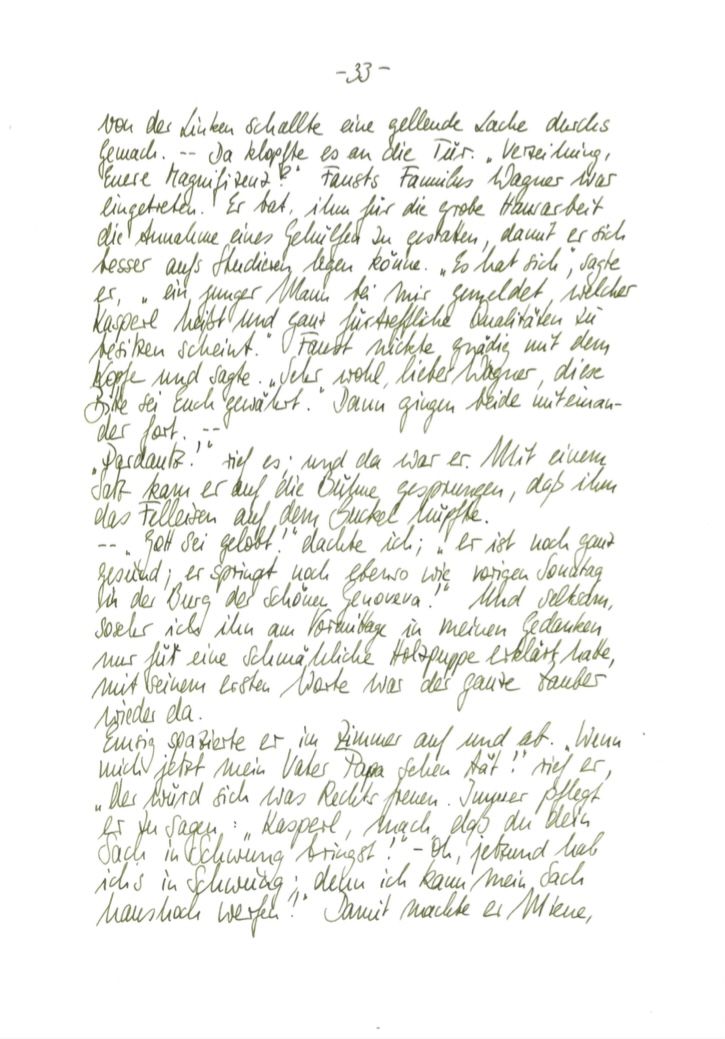 -33-
von der Linken schallte eine gellende Lache durchs
Gemach. -- Da klopfte es an die Tür. „Verzeihung,
Euere Magnifizenz!“ Fausts Famulus Wagner war
eingetreten. Er bat, ihm für die grobe Hausarbeit
die Annahme eines Gehülfen zu gestatten, damit er sich
besser aufs Studieren legen könne. „Es hat sich“, sagte
er, „ein junger Mann bei mir gemeldet, welcher
Kasperl heißt und ganz fürtreffliche Qualitäten zu
besitzen scheint.“ Faust nickte gnädig mit dem
Kopfe und sagte. „Sehr wohl, lieber Wagner, diese
Bitte sei Euch gewährt.“ Dann gingen beide miteinan-
der fort. --
„Pardautz!“ rief es; und da war er. Mit einem
Satz kam er auf die Bühne gesprungen, daß ihm
das Felleisen auf dem Buckel hüpfte.
-- „Gott sei gelobt!“ dachte ich; „er ist noch ganz
gesund; er springt noch ebenso wie vorigen Sonntag
in der Burg der schönen Genoveva!“ Und seltsam,
sosehr ich ihn am Vormittage in meinen Gedanken
nur für eine schmähliche Holzpuppe erklärt hatte,
mit seinem ersten Worte war der ganze Zauber
wieder da.
Emsig spazierte er im Zimmer auf und ab. „Wenn
mich jetzt mein Vater Papa sehen tät!“ rief er,
„der würd sich was Rechts freuen. Immer pflegt
er zu sagen: „Kasperl, mach, daß du dein
Sach in Schwung bringst!“ - Oh, jetzund hab
ichs in Schwung; denn ich kann mein Sach
haushoch werfen!“ Damit machte er Miene,